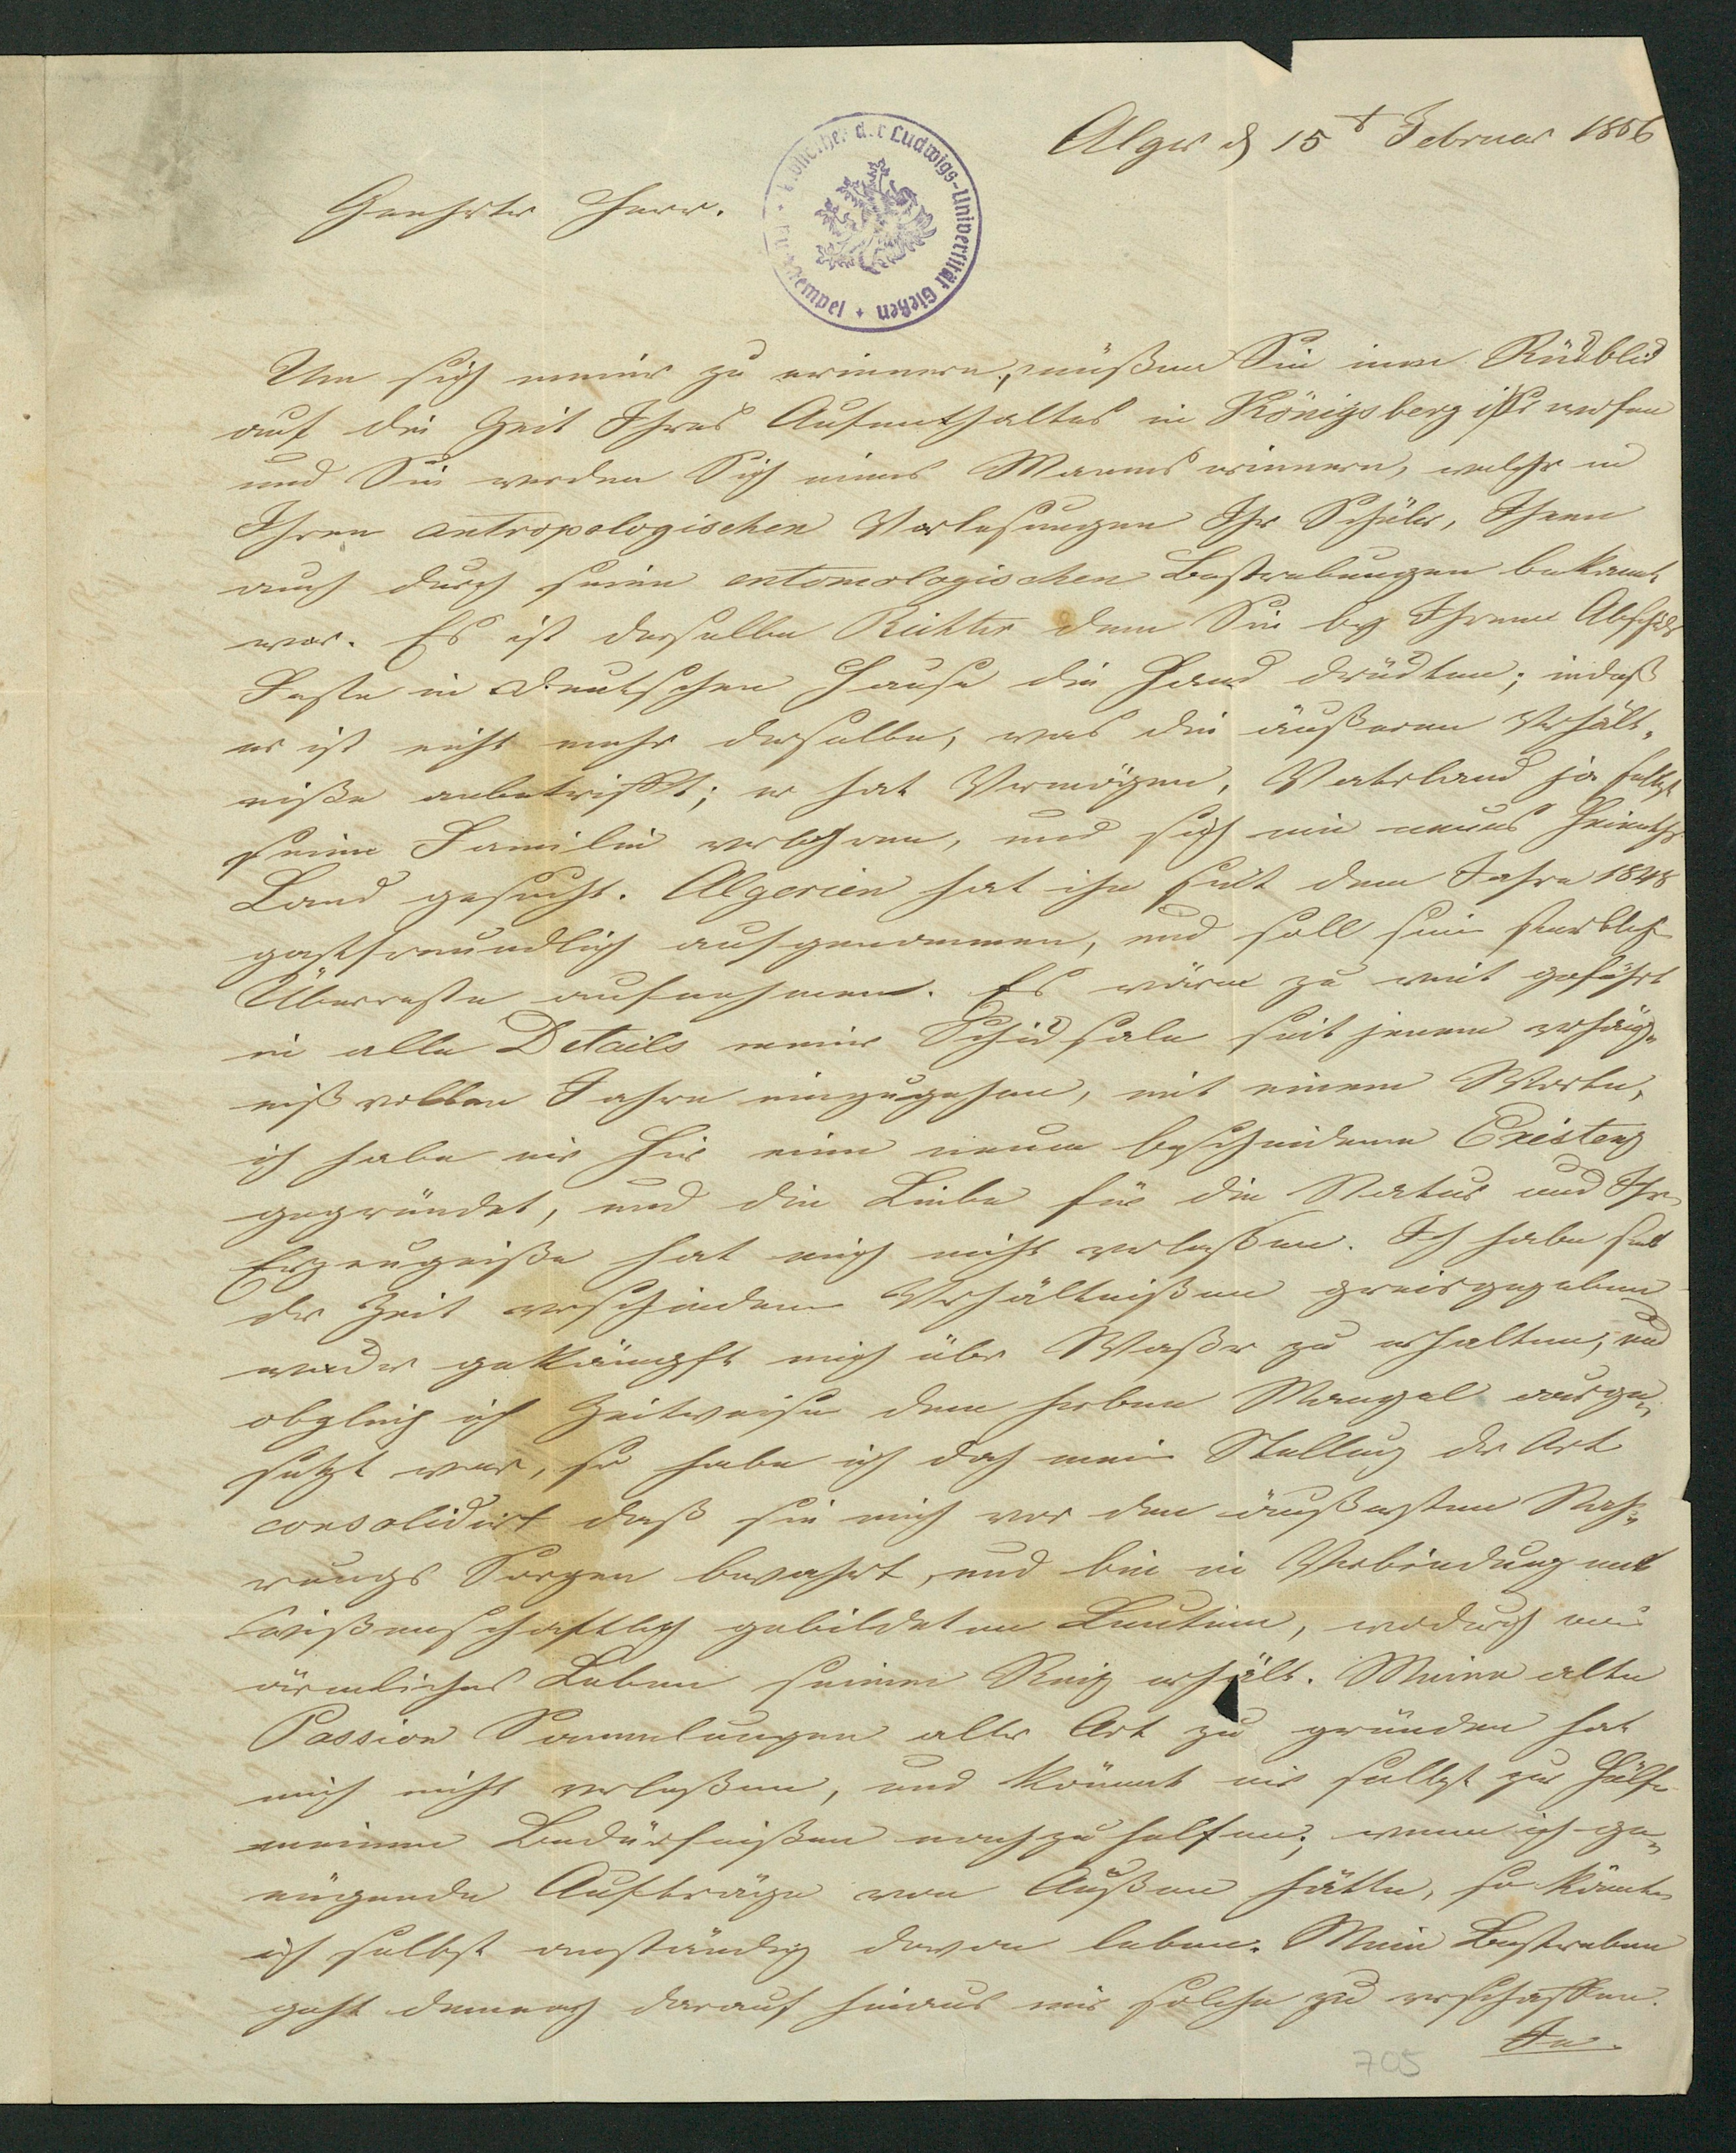 Alger d 15t Februar 1856
Geehrter Herr.
Bibliothek der Ludwigs-Universität Gießen
Um sich meiner zu erinnern, müßen Sie einen Rückblick
auf die Zeit Ihres Aufenthaltes in Königsberg werfen
und Sie werden Sich eines Mannes erinnern, welcher in
Ihren antropologischen Vorlesungen Ihr Schüler, Ihnen
auch durch seine entomologischen Bestrebungen bekannt
war. Es ist derselbe Richter dem Sie bey Ihrem Abschieds
Feste im deutschen Hause die Hand drückten; indeß
er ist nicht mehr derselbe, was die äußeren Verhält-
niße anbetrifft; er hat Vermögen, Vaterland ja selbst
seine Familie verlohren, und sich ein neues Heimaths
Land gesucht. Algerien hat ihn seit dem Jahre 1848
gastfreundlich aufgenommen, und soll seine sterblichen
Überreste aufnehmen. Es wäre zu weit geführt
in alle Details meiner Schicksale seit jenem verhäng-
nißvollen Jahre einzugehen, mit einem Worte,
ich habe mir hier eine neue bescheidene Existenz
gegründet, und die Liebe für die Natur und Ihre
Erzeugniße hat mich nicht verlaßen. Ich habe seit
der Zeit verschiedenen Verhältnißen preisgegeben
wacker gekämpft mich über Waßer zu erhalten, und
obgleich ich Zeitweise dem herben Mangel ausge-
setzt war, so habe ich doch meine Stellung der Art
consolidirt daß sie mich vor den äußersten Nah-
rungs Sorgen bewahrt, und bin in Verbindung mit
wißenschaftlich gebildeten Leuten, wodurch mein
ärmliches Leben seinen Reiz erhält. Meine alte
Passion Sammlungen aller Art zu gründen hat
mich nicht verlaßen, und kömmt mir selbst zur Hülfe
meinen Bedürfnißen nachzuhelfen; wenn ich ge-
nügende Aufträge von Außen hätte, so könnte
ich selbst anständig davon leben. Mein Bestreben
geht demnach darauf hinaus mir solche zu verschaffen.
In
705